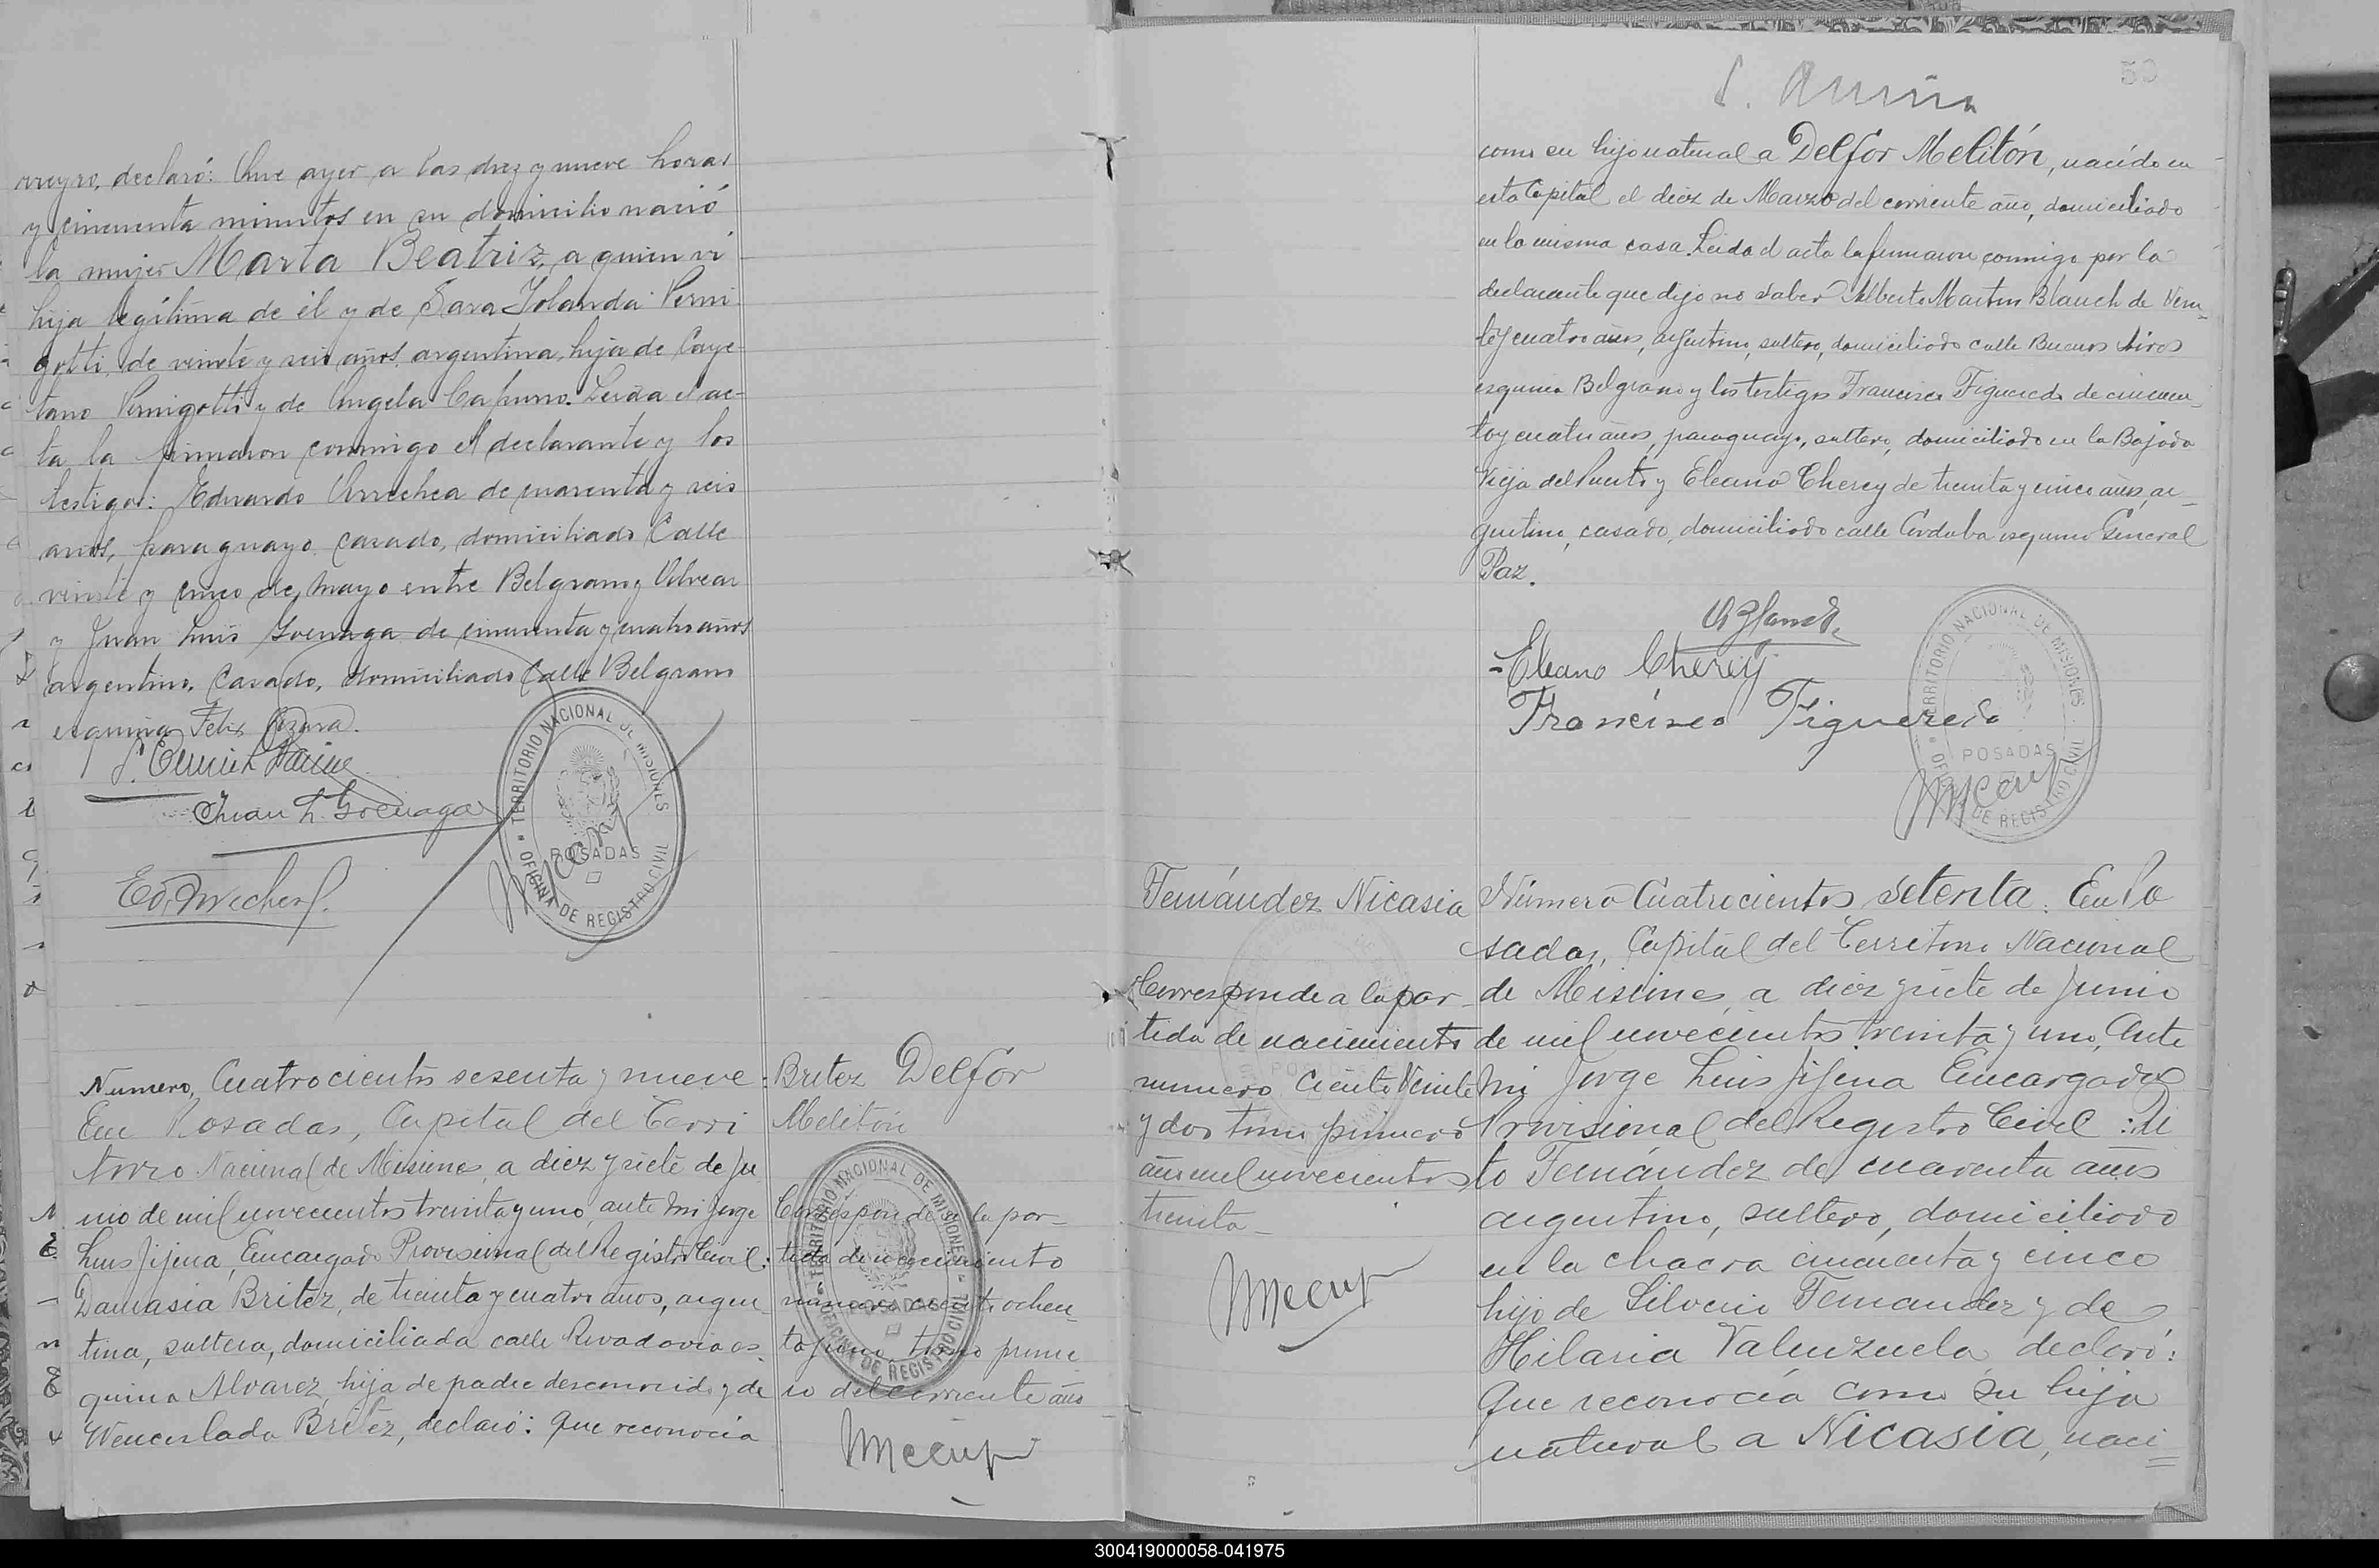 declaró: Que ayer a las diez y nueve horas
y cincuenta minutos en su domicilio nació
la mujer Marta Beatriz, a quien vi
hija legítima de él y de Sara Yolanda Perni
gotti, de veinte y seis años, argentina, hija de Caye-
tano Pernigotti y de Angela Capurro. Leída el ac-
ta la firmaron conmigo el declarante y los
testigos: Eduardo Arrechea de cuarenta y seis
años, paraguayo, casado, domiciliado Calle
veinte y cinco de Mayo entre Belgrano y Alvear
y Juan Luis Goenaga de cincuenta y cuatro años
argentino, casado, domiciliado Calle Belgrano
esquina Felix Azara.
Juan L. Goenaga
TERRITORIO NACIONAL DE MISIONES
POSADAS
OFICINA DE REGISTRO CIVIL
Numero, Cuatrocientos sesenta y nueve:
En Posadas, Capital del Terri
torio Nacional de Misiones, a diez y siete de Ju
nio de mil novecientos treinta y uno, ante mi Jorge
Luis Jijena, Encargado Provisional del Registro Civil:
Damasia Britez, de treinta y cuatro años, argen
tina, soltera, domiciliada calle Rivadavia es
quina Alvarez, hija de padre desconocido y de
Wenceslada Britez, declaró: que reconocía
Britez Delfor
Melitón
Corresponde a la par-
tida de nacimiento
número ciento ochen-
ta y uno tomo prime
ro del corriente año
TERRITORIO NACIONAL DE MISIONES
POSADAS
OFICINA DE REGISTRO CIVIL
50
como su hijo natural a Delfor Melitón, nacido en
esta Capital el diez de Marzo del corriente año, domiciliado
en la misma casa. Leída el acta la firmaron conmigo por la
declarante que dijo no saber Alberto Martin Blanch de Vein-
te y cuatro años, argentino, soltero, domiciliado calle Buenos Aires
esquina Belgrano y los testigos Francisco Figueredo de cincuen-
ta y cuatro años, paraguayo, soltero, domiciliado en la Bajada
Vieja del Puerto y Eleano Cherey de treinta y cinco años, ar-
gentino, casado, domiciliado calle Cordoba esquina General
Paz.
Eleano Cherey
Francisco Figueredo
TERRITORIO NACIONAL DE MISIONES
POSADAS
OFICINA DE REGISTRO CIVIL
Fernández Nicasia
Corresponde a la par-
tida de nacimiento
numero Ciento Veinte
y dos tomo primero
año mil novecientos
treinta-
Número Cuatrocientos setenta: En Po
sadas, Capital del Territorio Nacional
de Misiones, a diez y siete de Junio
de mil novecientos treinta y uno, Ante
mi Jorge Luis Jijena Encargado
Provisional del Registro Civil: Ti
to Fernández de cuarenta años
argentino, soltero, domiciliado
en la chacra cincuenta y cinco
hijo de Silverio Fernandez y de
Hilaria Valenzuela, declaró:
Que reconocía como su hija
natural a Nicasia, naci
300419000058-041975